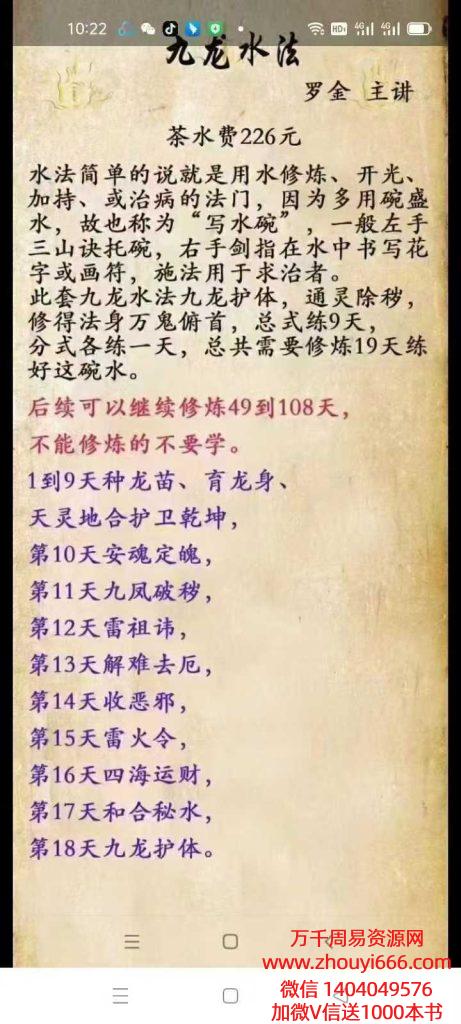 10:22
九龙水法
罗金 主讲
茶水费226元
水法简单的说就是用水修炼、开光、
加持、或治病的法门，因为多用碗盛
水，故也称为“写水碗”，一般左手
三山诀托碗，右手剑指在水中书写花
字或画符，施法用于求治者。
此套九龙水法九龙护体，通灵除秽，
修得法身万鬼俯首，总式练9天，
分式各练一天，总共需要修炼19天练
好这碗水。
后续可以继续修炼49到108天，
不能修炼的不要学。
1到9天种龙苗、育龙身、
天灵地合护卫乾坤，
第10天安魂定魄，
第11天九凤破秽，
第12天雷祖讳，
第13天解难去厄，
第14天收恶邪，
第15天雷火令，
第16天四海运财，
第17天和合秘水，
第18天九龙护体。
万千周易资源网
www.zhouyi666.com
微信 1404049576
加微V信送1000本书